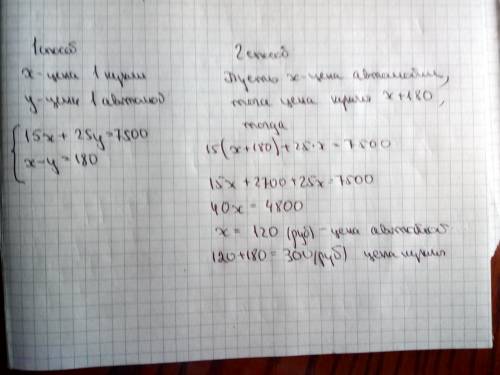 1 способ
x - цена 1 куклы
y - цена 1 автомоб
15x + 25y = 7500
x - y = 180
2 способ
Пусть x - цена автомобиля,
тогда цена куклы x + 180,
тогда
15(x + 180) + 25·x = 7500
15x + 2700 + 25x = 7500
40x = 4800
x = 120 (руб) - цена автомобиля
120 + 180 = 300 (руб) цена куклы